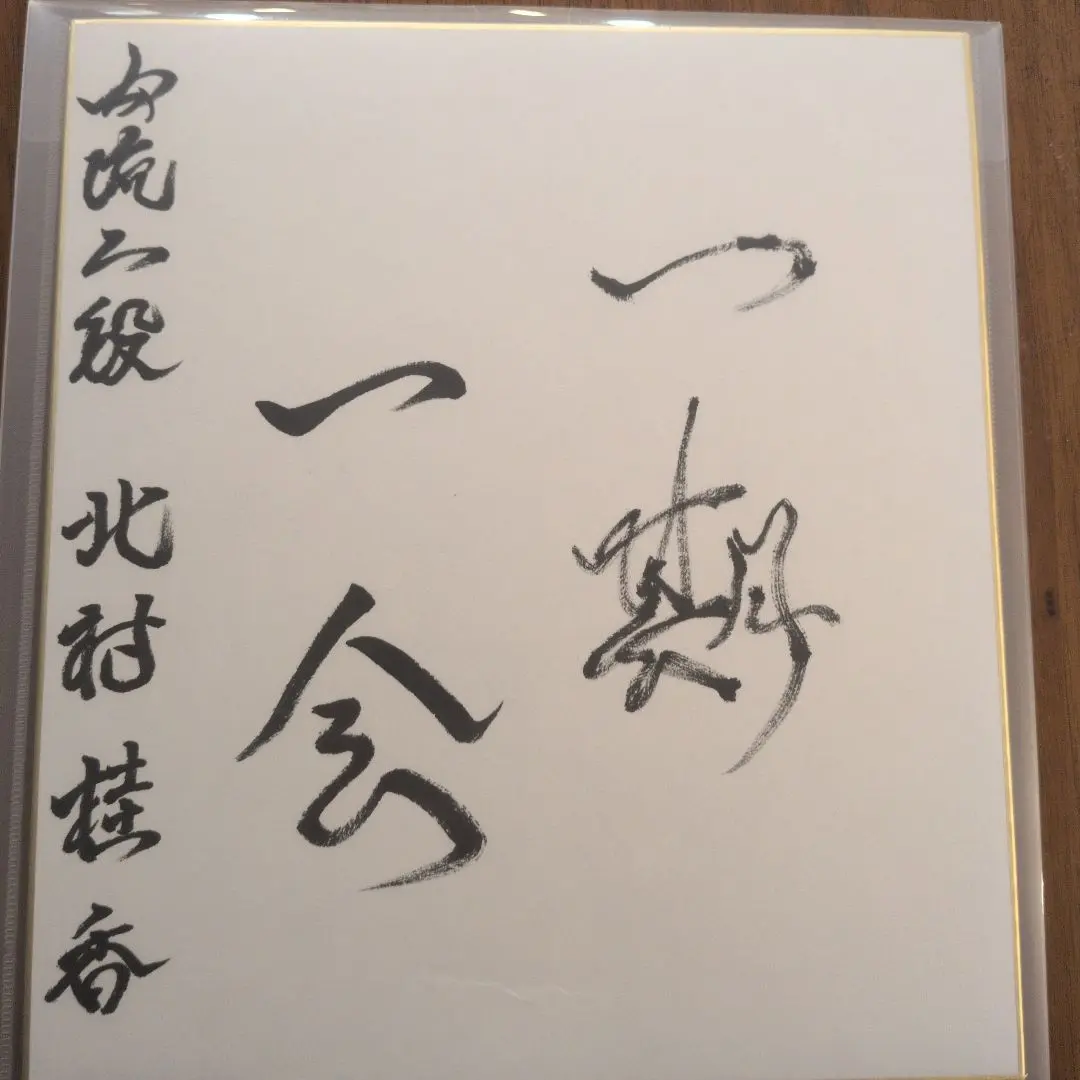 一期
一会
女流二段 北村桂香